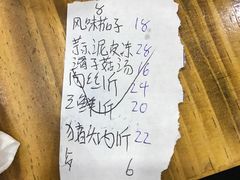 8
风味茄子 18
蒜泥皮冻 28
海子菇汤 16
肉丝炒 24
三鲜炒 20
猪头肉炒 22
6